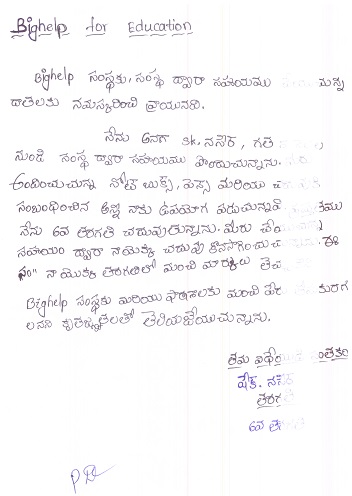 Bighelp for Education
Bighelp సంస్థకు, సంస్థ ద్వారా సహాయము చున్న
దాతలకు నమస్కరించి వ్రాయునది.
నేను అనగా Sk. నసీర, గత
నుండి సంస్థ ద్వారా సహాయము పొందుచున్నాను.
అందించుచున్న నోట్ బుక్స్, పెన్స్ మరియు
సంబంధించిన అన్ని నాకు ఉపయోగ పడుచున్నవి
నేను 6వ తరగతి చదువుతున్నాను. మీరు
సహాయం ద్వారా నాయొక్క చదువు కొనసాగించు ఈ
సం" నా యొక్క తరగతిలో మంచి మార్కులు
Bighelp సంస్థకు మరియు దాతలకు మంచి పేరు
లనని కృతజ్ఞతలతో తెలియజేయుచున్నాను.
తమ
షేక్. నసీర
తరగతి
6వ